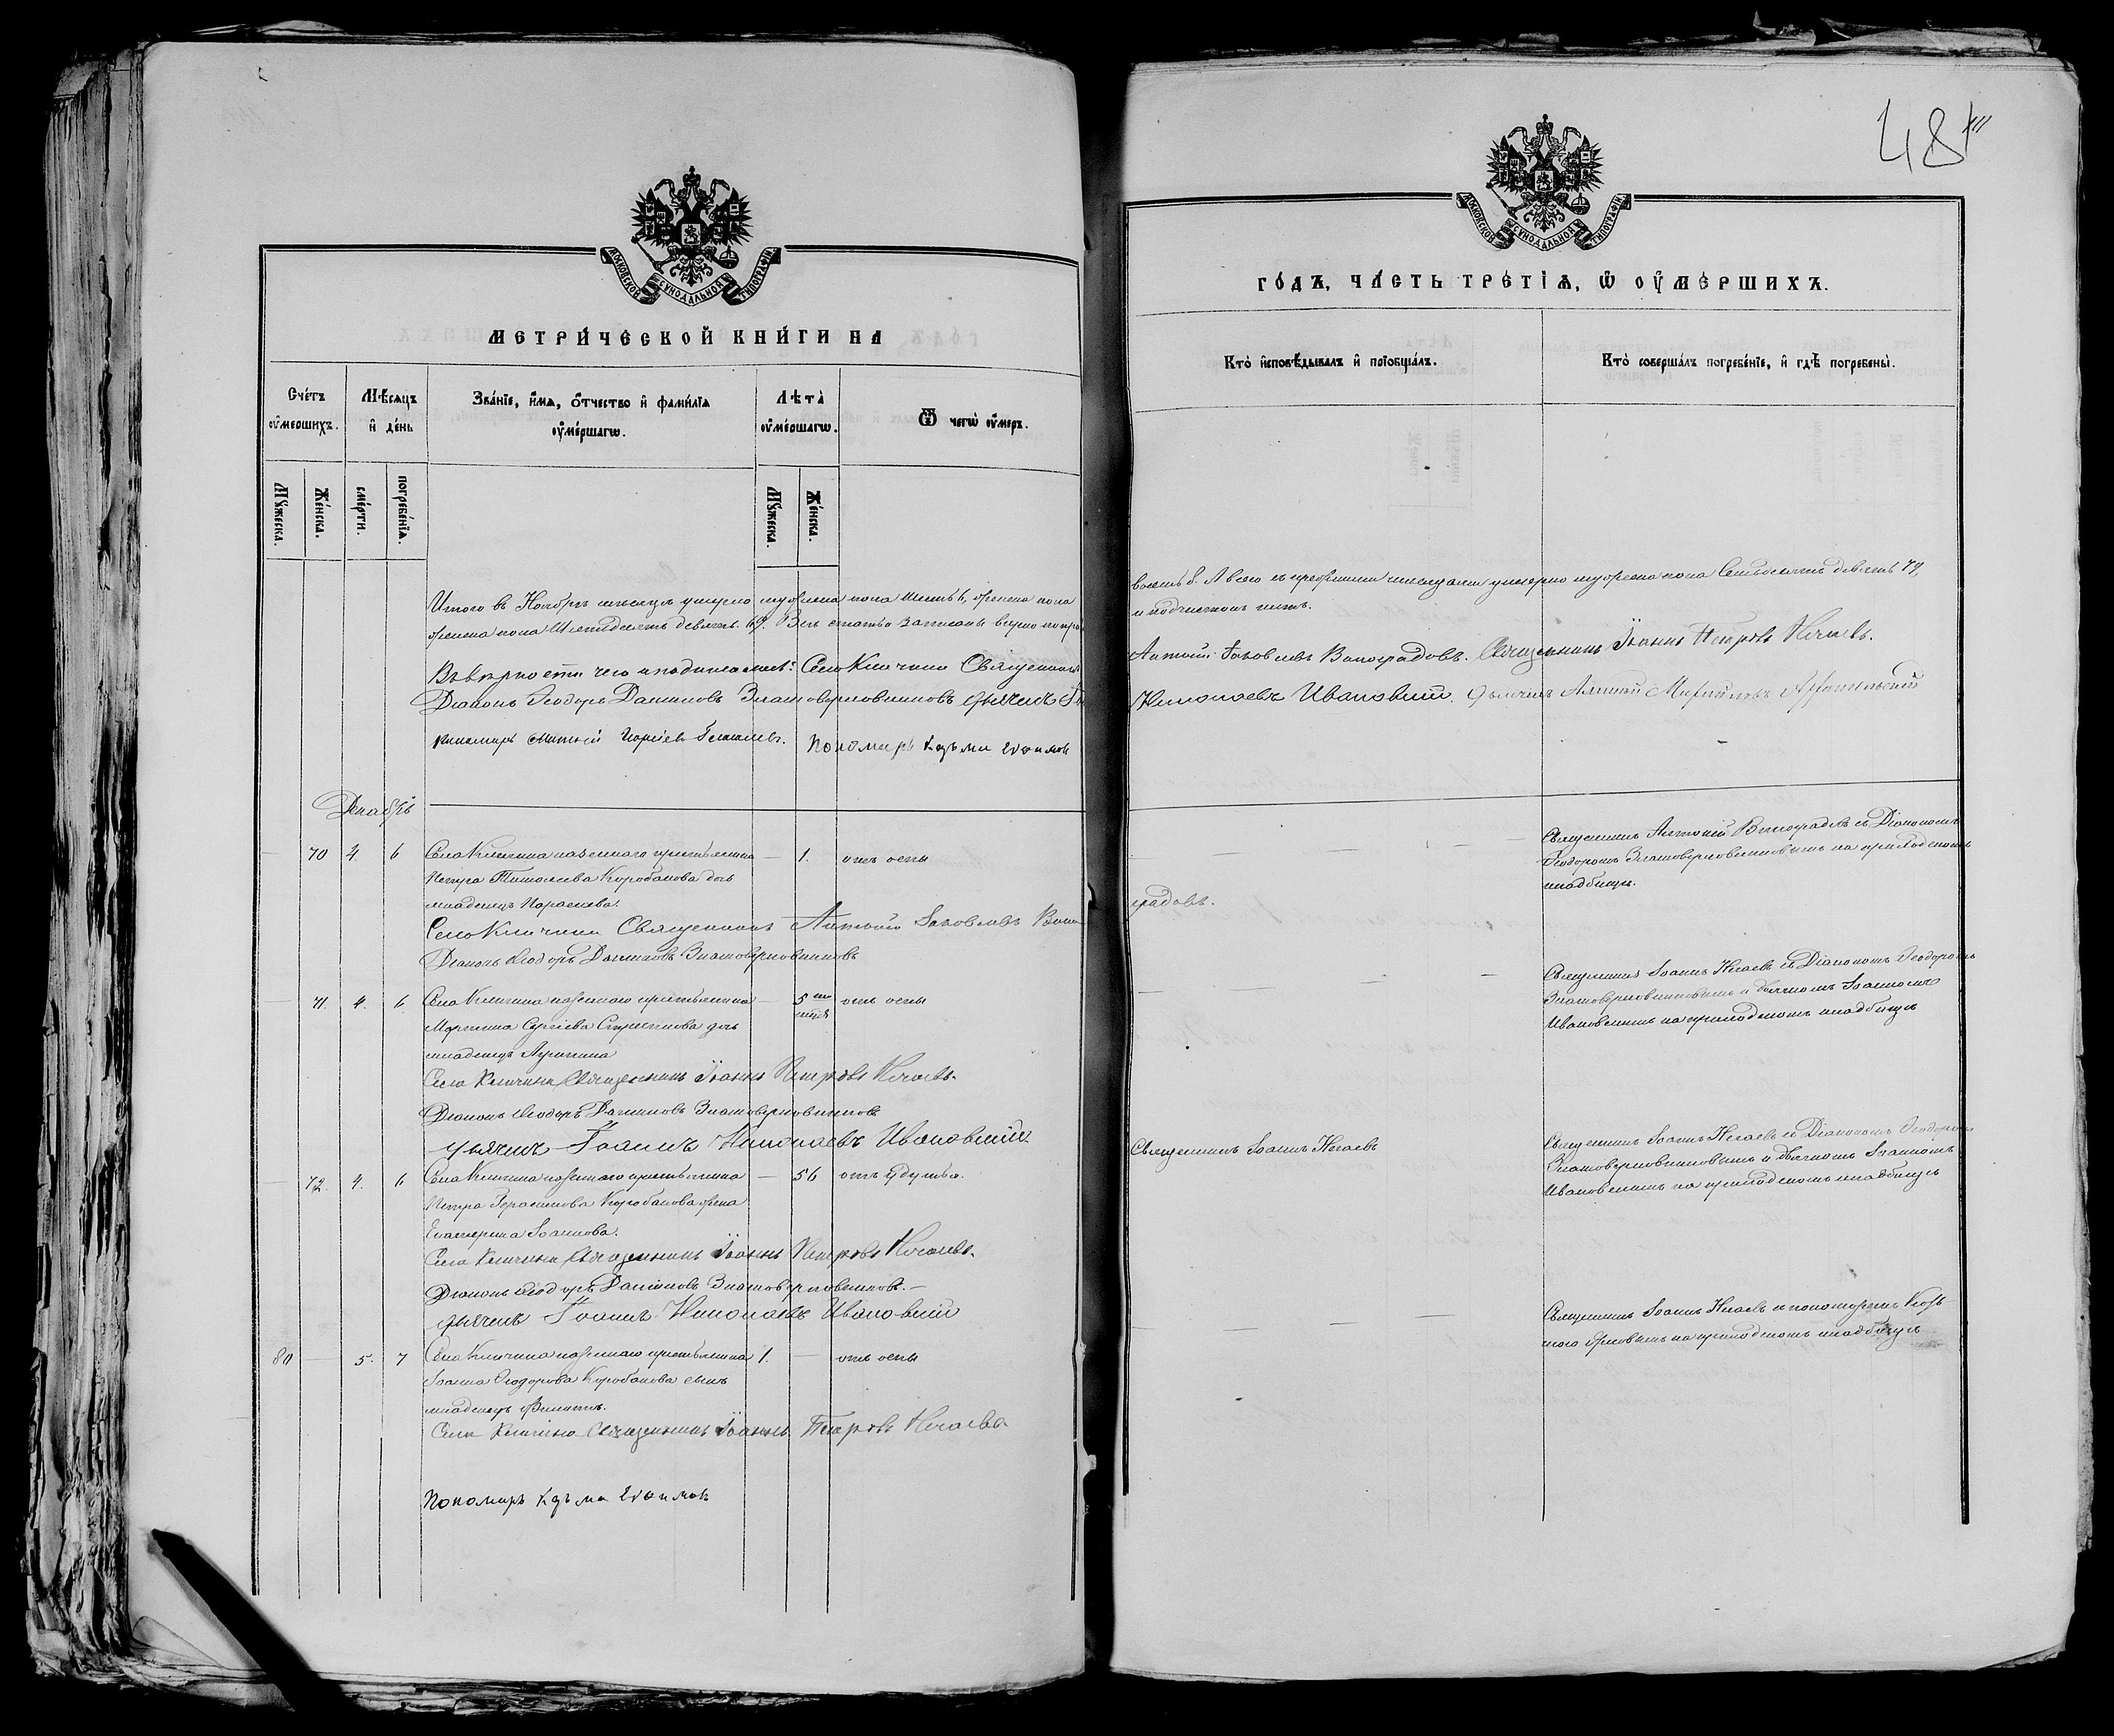 48
МОСКОВСКОЙ СѴНОДАЛЬНОЙ ТИПОГРАФІИ
МЕТРИ́ЧЕСКОЙ КНИ́ГИ НА
Сче́тъ ᲂу҆ме́ршихъ.
Мѣ́сяцъ и҆ де́нь
Зва́нїе, и҆́мѧ, ѻ҆́тчество и҆ фамі́лїѧ ᲂу҆ме́ршагѡ.
Лѣта̀ ᲂу҆ме́ршагѡ.
Ѿ чегѡ̀ ᲂу҆́меръ.
Мꙋ́жеска.
Же́нска.
сме́рти.
погребе́нїѧ.
Мꙋ́жеска.
Же́нска.
Итого въ Ноябрѣ мѣсяцѣ умерло мужеска пола шесть 6, женска пола
женска пола Шестьдесятъ девять. 69. Всѣ статьи записаны вѣрно
Въ вѣрности чего и подписались: Села Кличина Священникъ
Діаконъ Ѳеодоръ Даниловъ Златоверховниковъ дьячекъ
Пономарь Козьма Ефимов
Декабрь
70 4. 6 Села Кличина казеннаго крестьянина — 1. отъ оспы
Петра Тимоѳеева Коробанова дочь
младенецъ Параскева.
Село Кличина Священникъ Антоній Іаковлевъ Вино
Діаконъ Ѳеодоръ Даниловъ Златоверховниковъ
71. 4. 6 Села Кличина казеннаго крестьянина — 5 отъ оспы
Мартина Сергіева дочь
младенецъ
Села Кличина Священникъ Іоаннъ Петровъ Нечаевъ.
Діаконъ Ѳеодоръ Даниловъ Златоверховниковъ
дьячекъ Іоаннъ Николаевъ Ивановскій
72. 4. 6 Села Кличина казеннаго крестьянина — 56 отъ удушья.
Петра Герасимова Коробанова жена
Екатерина Іоаннова.
Села Кличина Священникъ Іоаннъ Петровъ Нечаевъ.
Діаконъ Ѳеодоръ Даниловъ Златоверховниковъ.
дьячекъ Іоаннъ Николаевъ Ивановскій
80 — 5. 7 Села Кличина казеннаго крестьянина 1. — отъ оспы
Іоанна Ѳеодорова Коробанова сынъ
младенецъ Филиппъ.
Села Кличина Священникъ Іоаннъ Петровъ Нечаевъ
Пономарь Козьма Ефимов
МОСКОВСКОЙ СѴНОДАЛЬНОЙ ТИПОГРАФІИ
ГО́ДЪ, ЧА́СТЬ ТРЕ́ТІѦ, Ѡ҆ ОУ҆МЕ́РШИХЪ.
Кто̀ и҆сповѣ́дывалъ и҆ прїѡбща́лъ.
Кто̀ соверша́лъ погребе́нїе, и҆ гдѣ̀ погребены̀.
восемь 8. А всего съ прежними мѣсяцами умерло мужеска пола Семьдесятъ девять 79,
и подчистокъ нѣтъ.
Антоній Іаковлевъ Виноградовъ. Священникъ Іоаннъ Петровъ Нечаевъ.
Николаевъ Ивановскій. дьячекъ
Священникъ Антоній Виноградовъ съ Діакономъ
Ѳеодоромъ Златоверховниковымъ на приходскомъ
кладбищѣ.
градовъ.
Священникъ Іоаннъ Нечаевъ съ Діакономъ Ѳеодоромъ
Златоверховниковымъ и дьячкомъ Іоанномъ
Ивановскимъ на приходскомъ кладбищѣ
Священникъ Іоаннъ Нечаевъ
Священникъ Іоаннъ Нечаевъ съ Діакономъ Ѳеодоромъ
Златоверховниковымъ и дьячкомъ Іоанномъ
Ивановскимъ на приходскомъ кладбищѣ
Священникъ Іоаннъ Нечаевъ и пономаремъ Козь
мою Ефимовымъ на приходскомъ кладбищѣ